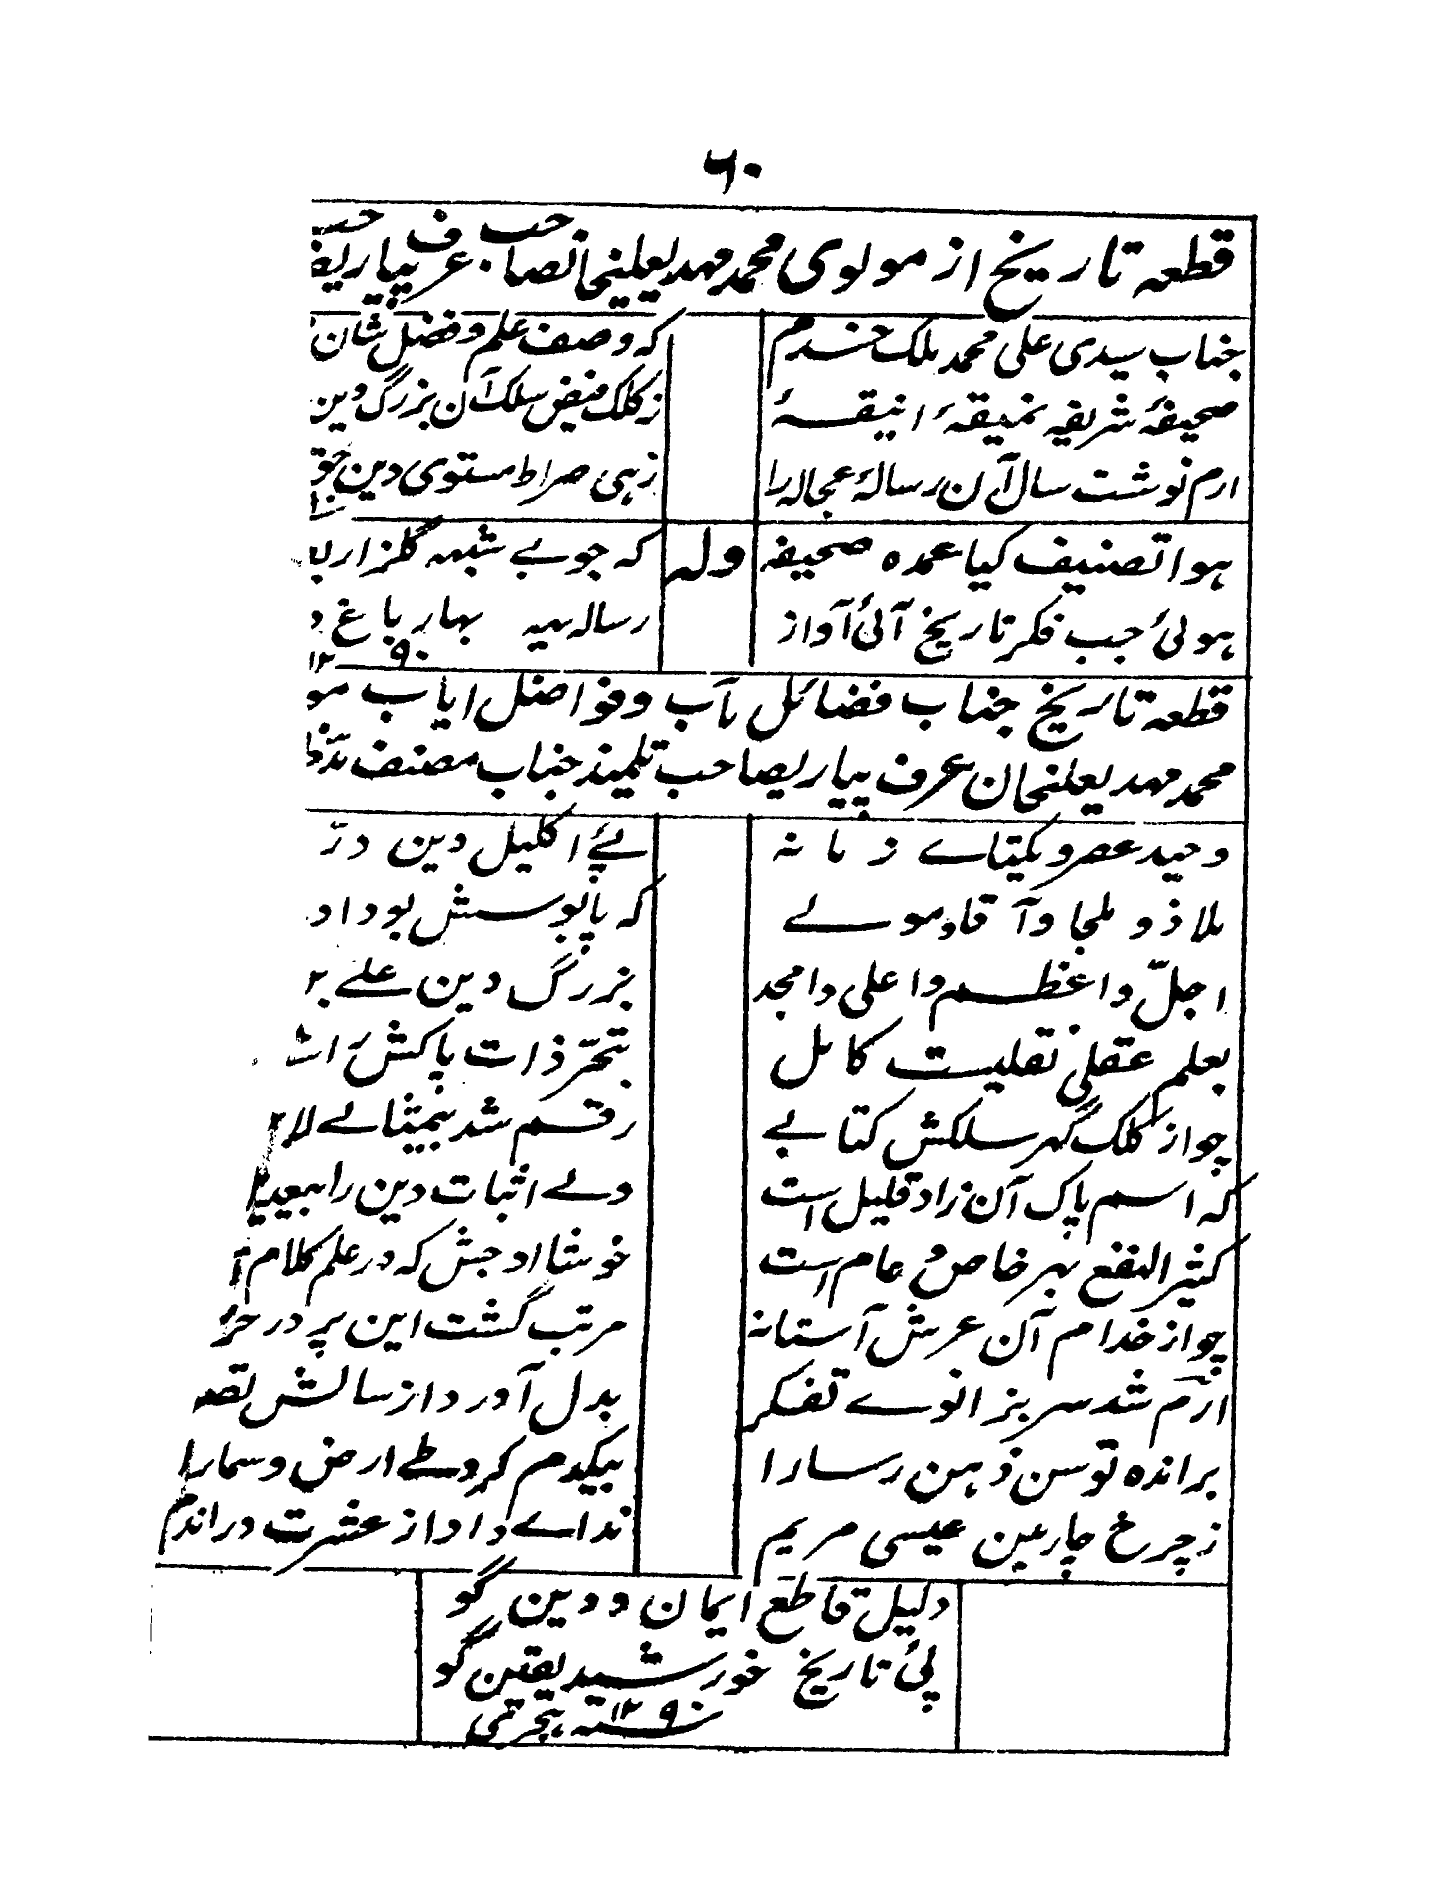 ٦٠
قطعہ تاریخ از مولوی محمد مہدیعلیخانصاحب عرف پیاریصا
جناب سیدی علی محمد ملک خدم
کہ وصف علم و فضل شان
صحیفۂ شریفہ نمیقۂ انیقۂ
ز کلک فیض سلک آن بزرگ دین
ارم نوشت سال آن رسالۂ عجالہ را
زہی صراط مستوی دین حق
ہوا تصنیف کیا عمدہ صحیفہ
ولہ
کہ جو بے شبہہ گلزار
ہوئی جب فکر تاریخ آئی آواز
رسالہ ہیہ بہار باغ
١٢٩٠
قطعہ تاریخ جناب فضائل مآب و فواضل ایاب
محمد مہدیعلنحان عرف پیاریصاحب تلمیذ جناب مصنف
وحید عصر و یکتاے زمانہ
پئے اکلیل دین در
ملاذ و ملجا و آقا و مولے
کہ پابوسش بود
اجلّ و اعظم و اعلی و امجد
بزرگ دین علے
بعلم عقلی نقلیست کامل
تبحّر ذات پاکش
چو از کلک گہر سلکش کتابے
رقم شد بیمثالے
کہ اسم پاک آن زاد قلیل است
ولے اثبات دین را
کثیر النفع بہر خاص و عام است
خوشا اوجش کہ در علم کلام
چو از خدام آن عرش آستانہ
مرتب گشت این پر در
ارم شد سر بزانوے تفکر
بدل آورد از سالش
براندہ توسن ذہن رسا را
بیکدم کرد طے ارض و سما را
ز چرخ چارمین عیسی مریم
نداے داد از عشرت در اندم
دلیل قاطع ایمان و دین گو
پئ تاریخ خورشید یقین گو
سنہ ١٢٩٠ ہجری